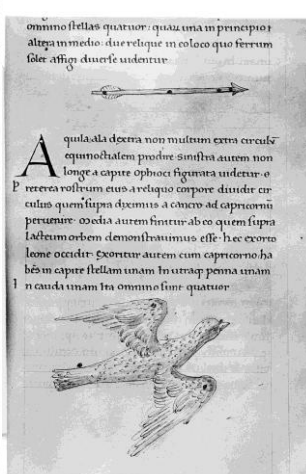 omnino stellas quatuor: quaꝝ una in principio ⁊
altera in medio: due relique in eo loco quo ferrum
solet affigi diuerse uidentur
Aquila: ala dextra non multum extra circulũ
equinoctialem prodire: sinistra autem non
longe a capite ophioci figurata uidetur. 
Preterea rostrum eius a reliquo corpore diuidit cir
culus quem supra diximus a cancro ad capricornũ
peruenire. Media autem finitur ab eo quem supra
lacteum orbem demonstrauimus esse. hec exorto
leone occidit. exoritur autem cum capricorno. ha
bẽs in capite stellam unam In utraqꝫ penna unam
In cauda unam Ita omnino sunt quatuor